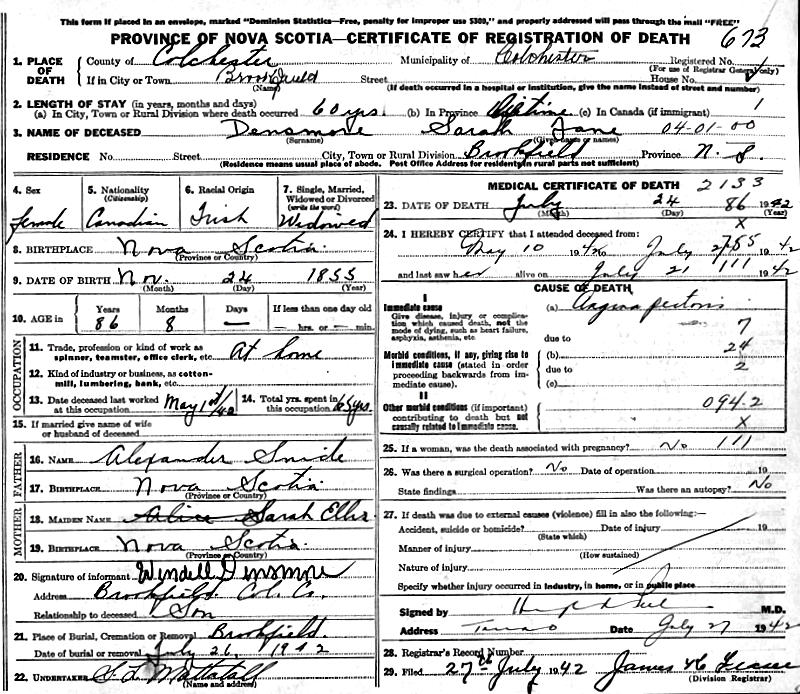 This form if placed in an envelope, marked "Dominion Statistics—Free, penalty for improper use $300," and properly addressed will pass through the mail "FREE"
PROVINCE OF NOVA SCOTIA—CERTIFICATE OF REGISTRATION OF DEATH 673
1. PLACE OF DEATH County of Colchester Municipality of Colchester Registered No.
(For use of Registrar General only)
If in City or Town Street House No.
(Name) (If death occurred in a hospital or institution, give the name instead of street and number)
2. LENGTH OF STAY (in years, months and days)
(a) In City, Town or Rural Division where death occurred 60 yrs. (b) In Province Lifetime (c) In Canada (if immigrant) 1
3. NAME OF DECEASED Densmore Sarah Jane 04-01-00
(Surname) (Given names or names)
RESIDENCE No. Street City, Town or Rural Division Brookfield Province N. S.
(Residence means usual place of abode. Post Office Address for residents in rural parts not sufficient)
4. Sex Female
5. Nationality (Citizenship) Canadian
6. Racial Origin Irish
7. Single, Married, Widowed or Divorced (write the word) Widowed
8. BIRTHPLACE Nova Scotia
(Province or Country)
9. DATE OF BIRTH Nov. 24 1855
(Month) (Day) (Year)
10. AGE in Years 86 Months 8 Days — If less than one day old — hrs. or — min.
OCCUPATION
11. Trade, profession or kind of work as spinner, teamster, office clerk, etc. At home
12. Kind of industry or business, as cotton-mill, lumbering, bank, etc.
13. Date deceased last worked at this occupation May 1st/42 14. Total yrs. spent in this occupation 65 yrs.
15. If married give name of wife or husband of deceased
FATHER
16. NAME Alexander
17. BIRTHPLACE Nova Scotia
(Province or Country)
MOTHER
18. MAIDEN NAME Alice Sarah Ellis
19. BIRTHPLACE Nova Scotia
(Province or Country)
20. Signature of informant Wendell Densmore
Address Brookfield Col. Co.
Relationship to deceased Son
21. Place of Burial, Cremation or Removal Brookfield.
Date of burial or removal July 26, 1942
22. UNDERTAKER
(Name and address)
MEDICAL CERTIFICATE OF DEATH 2133
23. DATE OF DEATH July 24 86 1942
(Month) (Day) (Year)
X
24. I HEREBY CERTIFY that I attended deceased from:
May 10 1942 to July 1942
and last saw her alive on July 21 111 1942
CAUSE OF DEATH
I
Immediate cause (a) Angina pectoris
Give disease, injury or complication which caused death, not the mode of dying, such as heart failure, asphyxia, asthenia, etc.
7
due to
24
Morbid conditions, if any, giving rise to immediate cause (stated in order proceeding backwards from immediate cause). (b)
due to 2
(c)
II
094-2
Other morbid conditions (if important) contributing to death but not causally related to immediate cause.
X
25. If a woman, was the death associated with pregnancy? No 111
26. Was there a surgical operation? No Date of operation 19
State findings Was there an autopsy? No
27. If death was due to external causes (violence) fill in also the following:—
Accident, suicide or homicide? Date of injury 19
(State which)
Manner of injury
(How sustained)
Nature of injury
Specify whether injury occurred in industry, in home, or in public place
Signed by M.D.
Address Truro Date July 27 1942
28. Registrar's Record Number
29. Filed 27th July 1942 James
(Division Registrar)